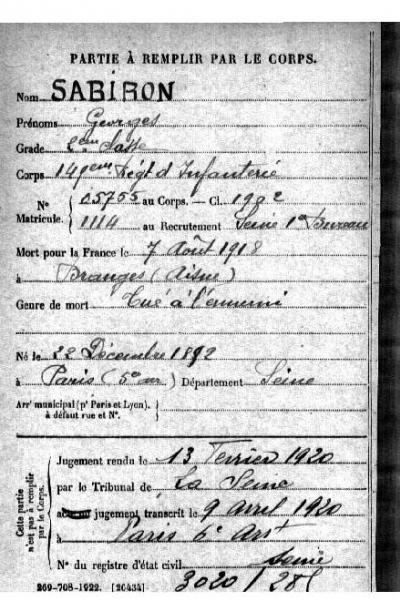 PARTIE À REMPLIR PAR LE CORPS.
Nom SABIRON
Prénoms Georges
Grade 2ème classe
Corps 149em Régt d'Infanterie
N° Matricule. { 05755 au Corps. — Cl. 1902
1114 au Recrutement Seine 1er Bureau
Mort pour la France le 7 Août 1918
à Branges (Aisne)
Genre de mort Tué à l'ennemi
Né le 22 Décembre 1892
à Paris (5e arr) Département Seine
Arrt municipal (pr Paris et Lyon),
à défaut rue et N°.
Cette partie n'est pas à remplir par le Corps.
Jugement rendu le 13 Fevrier 1920
par le Tribunal de La Seine
jugement transcrit le 9 avril 1920
à Paris 6e Arrt
Seine
N° du registre d'état civil 3020 / 28
269-708-1922. [26434]